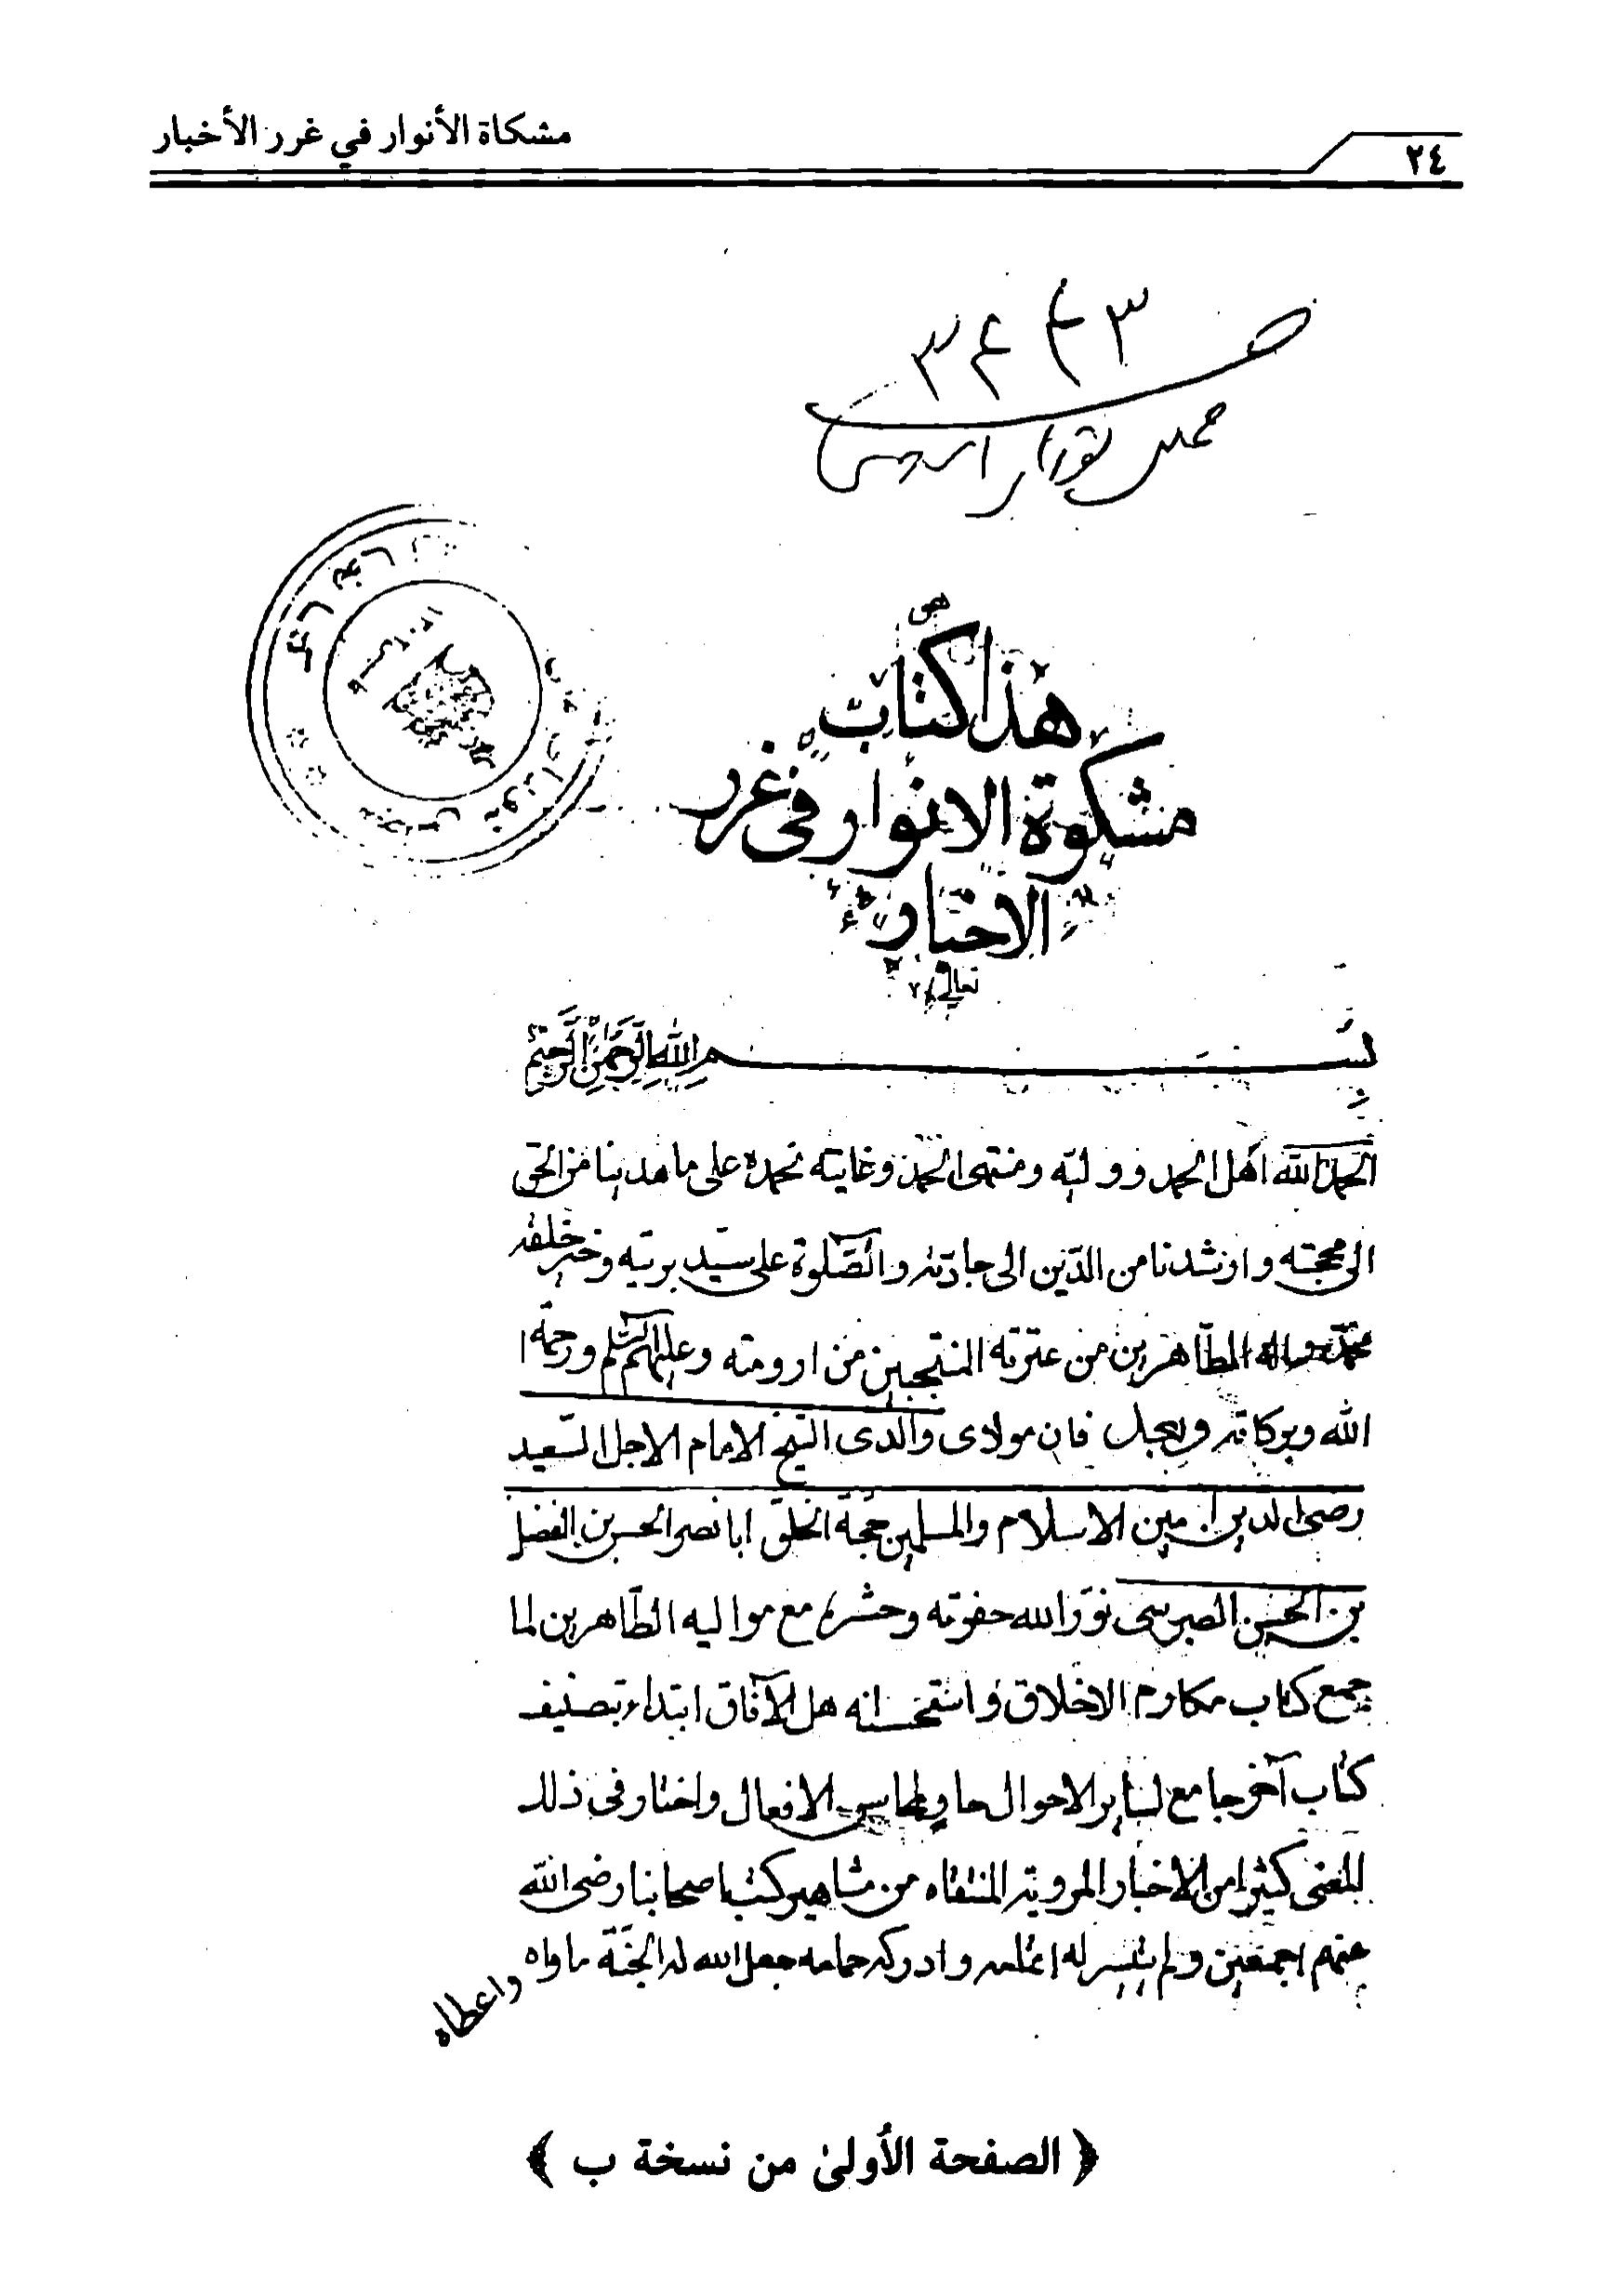 مشكاة الأنوار في غرر الأخبار
٢٤
هذا كتاب
مشكوة الانوار فى غرر
الاخبار
تعالى
بسم الله الرحمن الرحيم
الحمد لله اهل الحمد ووليّه ومنتهى الحمد وغايته نحمده على ما هدينا من الحق
الى محجّته وارشدنا من الدّين الى جادّته والصّلوة على سيّد بريّته وخير خلقه
محمّد واله الطّاهرين من عترته المنتجبين من ارومته وعليهم السّلم ورحمة
الله وبركاته وبعد فان مولاى والدى الشيخ الامام الاجل السّعيد
رضى الدين امين الاسلام والمسلمين حجّة الخلق ابا نصر الحسن بن الفضل
بن الحسن الطبرسى نوّر الله حفرته وحشره مع مواليه الطّاهرين لما
جمع كتاب مكارم الاخلاق واستحسنه اهل الآفاق ابتداء بتصنيف
كتاب آخر جامع لساير الاحوال حاو لمحاسن الافعال واختار فى ذلك
المعنى كثيرا من الاخبار المروية المنتقاه من مشاهير كتب اصحابنا رضى الله
عنهم اجمعين ولم يتيسر له اتمامه وادركه حمامه جعل الله له الجنّة ماواه
واعطاه
﴿ الصفحة الأولىٰ من نسخة ب ﴾